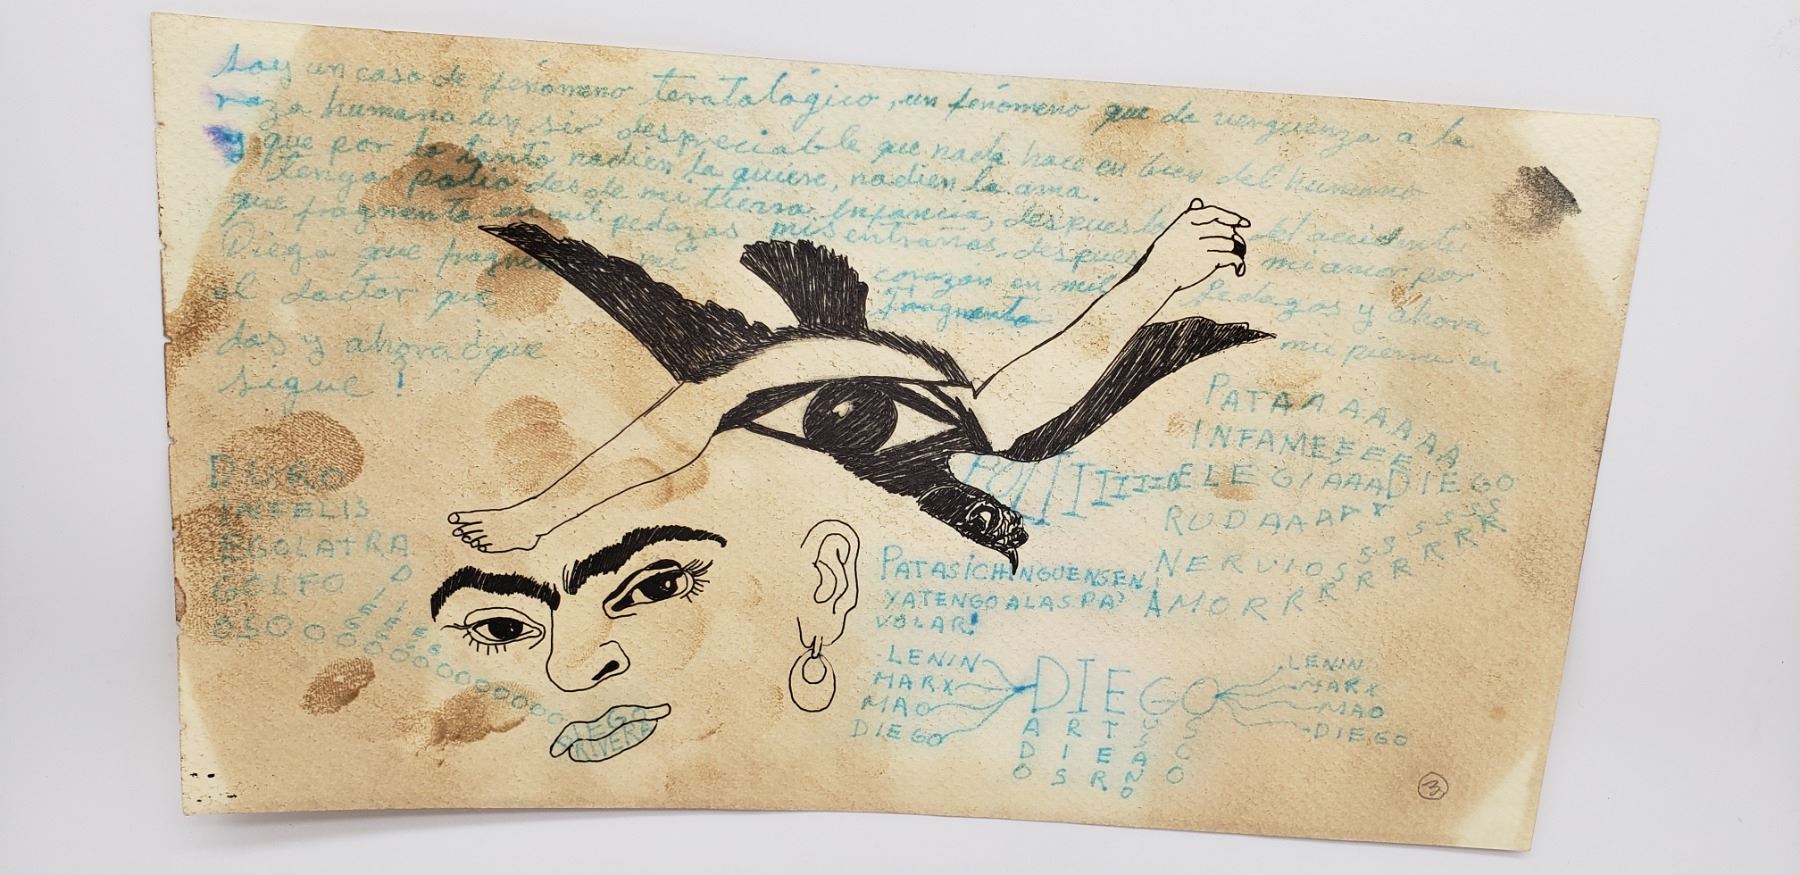 Soy un caso de fenómeno teratológico, un fenómeno que da verguenza a la
raza humana un ser despreciable que nada hace en bien del humano
y que por lo tanto nadien la quiere, nadien la ama.
Tengo polio desde mi tierna infancia, despues del accidente
que fragmento en mil pedazos mis entrañas, despues mi amor por
Diego que fragmento mi corazon en mil pedazos y ahora
el doctor que fragmento mi pierna en
dos y ahora ¿que
sigue !
DURO
INFELIS
EGOLATRA
GOLFO
OSOOOOOOOOOOOOOOOO
DIEGO
RIVERA
PATAAAAAAAA
INFAMEEEEE
ELEGIAAADIEGO
RUDAAAA
NERVIOSSSSSSS
AMORRRRRRRRR
PATASICHINGUENSEN
YATENGOALASPA'
VOLAR!
LENIN
MARX
MAO
DIEGO
DIEGO
LENIN
MARX
MAO
DIEGO
A R T
D I E A
O S R N O